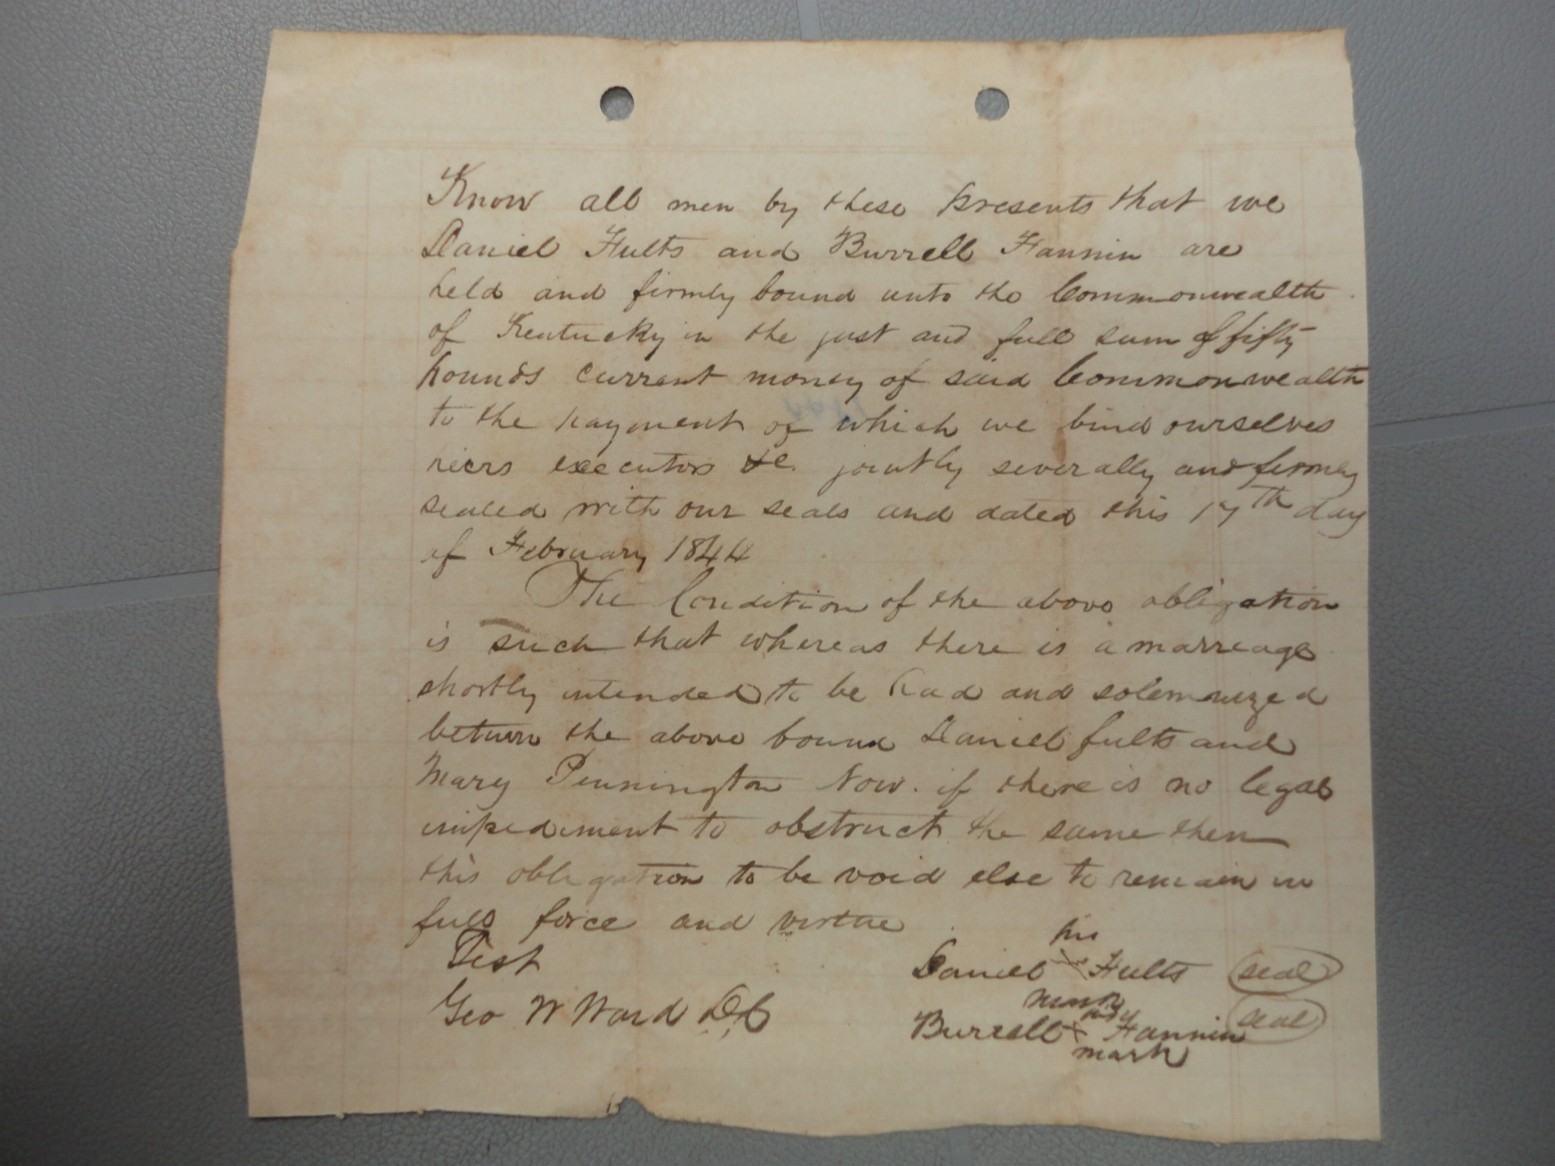 Know all men by these presents that we
Daniel Fults and Burrell Fannin are
held and firmly bound unto the Commonwealth
of Kentucky in the just and full sum of fifty
pounds current money of said Commonwealth
to the payment of which we bind ourselves
heirs executors &c. jointly severally and firmly
sealed with our seals and dated this 17th day
of February 1844
The Condition of the above obligation
is such that whereas there is a marreage
shortly intended to be had and solemnized
between the above bound Daniel fults and
Mary Pennington Now. if there is no legal
impediment to obstruct the same then
this obligation to be void else to remain in
full force and virtue
Test
Geo W Ward D.C
his
Daniel X Fults seal
mark
his
Burrell X Fannin seal
mark